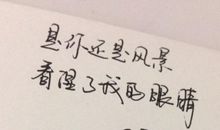 是你还是风景
看湿了我的眼睛